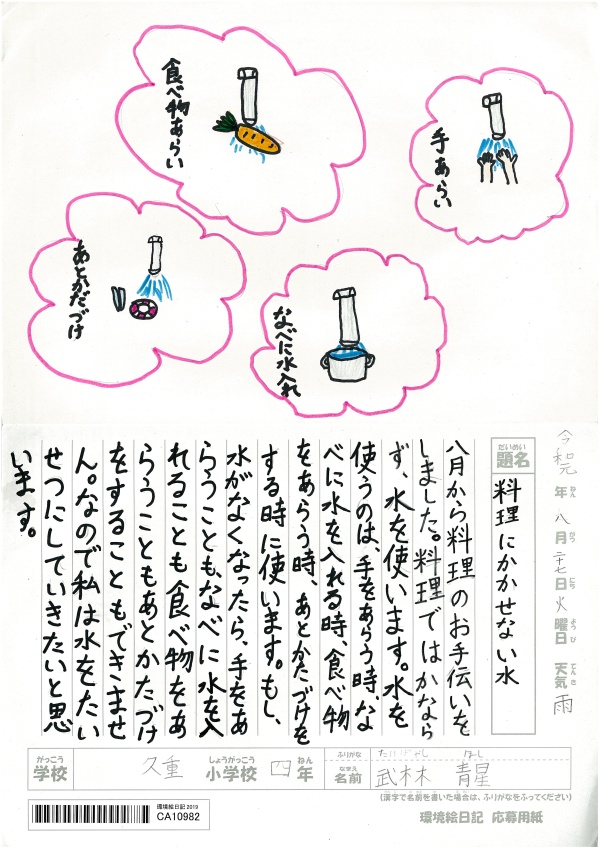 食べ物あらい
手あらい
あとかだづけ
なべに水入れ
令和元年ねん八月がつ二十七日にち火曜日ようび天気てんき雨
だいめい
題名
料理にかかせない水
八月から料理のお手伝いを
しました。料理ではかなら
ず、水を使います。水を
使うのは、手をあらう時、な
べに水を入れる時、食べ物
をあらう時、あとかたづけを
する時に使います。もし、
水がなくなったら、手をあ
らうことも、なべに水を入
れることも食べ物をあ
らうこともあとかたづけ
をすることもできませ
ん。なので私は水をたい
せつにしていきたいと思
います。
がっこう しょうがっこう ねん
学校 久重 小学校 四年
ふりがな たけばやし ほし
なまえ
名前 武林 青星
(漢字で名前を書いた場合は、ふりがなをふってください)
環境絵日記 2019
CA10982
環境絵日記 応募用紙